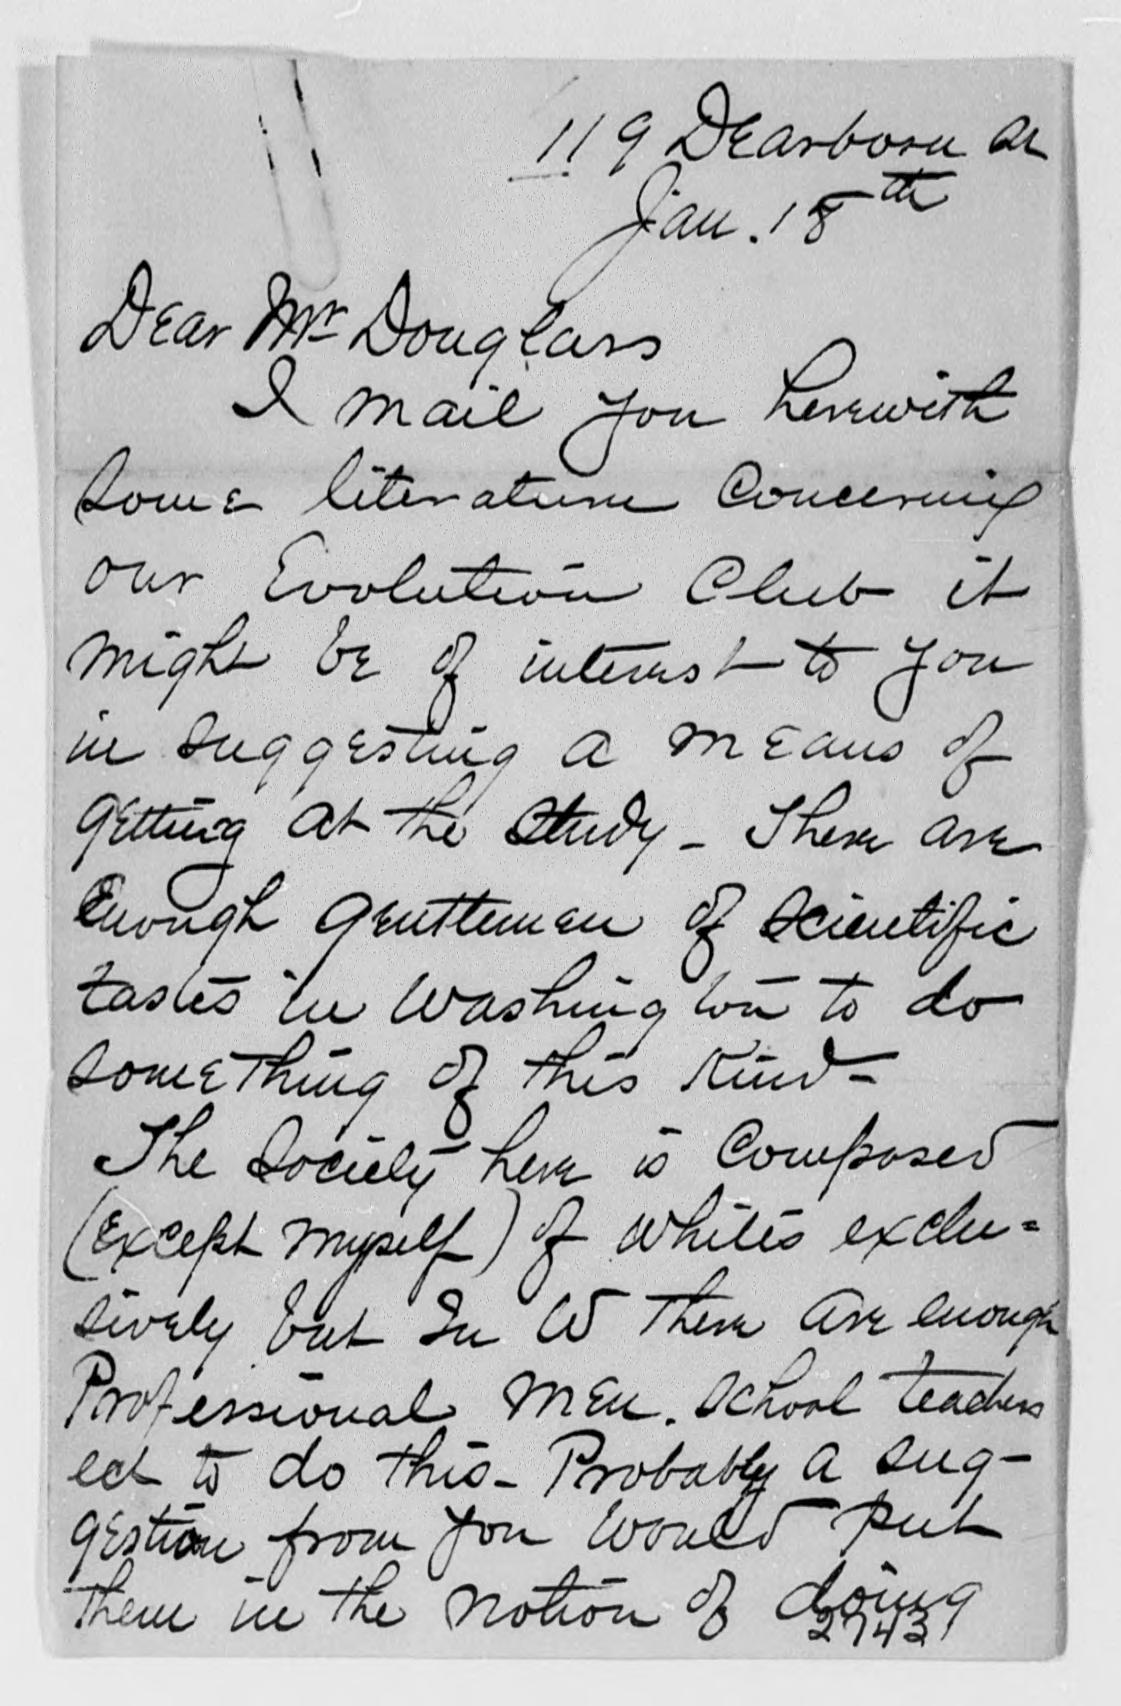 119 Dearborn St
Jan. 18th
Dear Mr Douglass
I mail you herewith
some literature concerning
our Evolution Club it
might be of interest to you
in suggesting a means of
getting at the study - There are
enough gentlemen of scientific
tastes in Washington to do
something of this kind -
The Society here is composed
(except myself) of whites exclu=
sively but In W there are enough
Professional men. School teachers
ect to do this - Probably a sug-
gestion from you would put
them in the notion of doing
27439